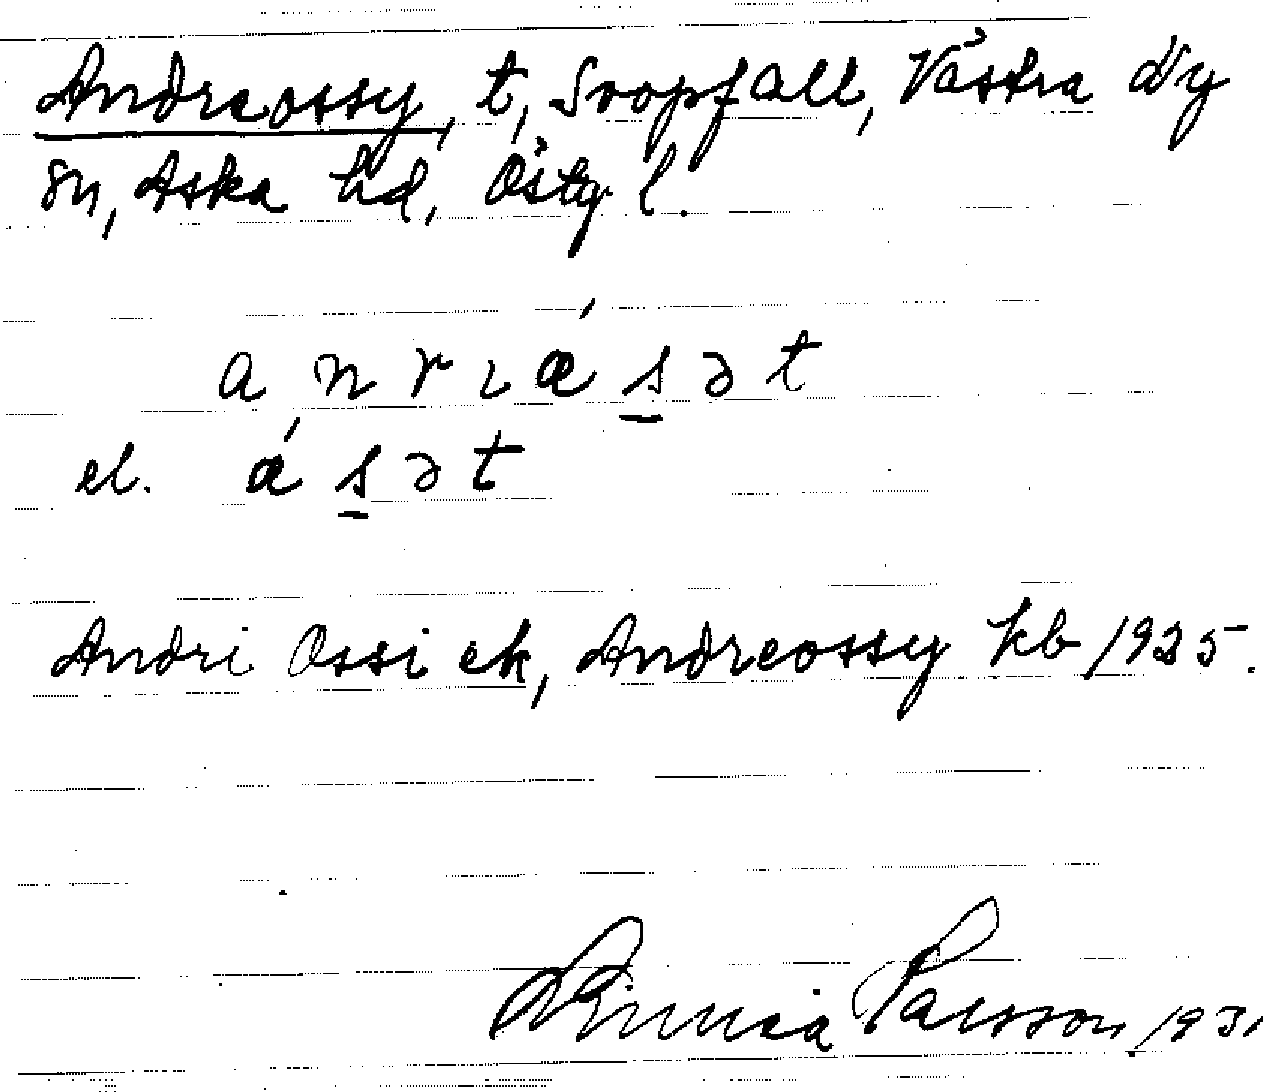 Andreossy, t, Sropfall, Västra Ny
sn, Aska hd, Östg l.
a n r ı ǽ s̲ ə t
el. ǽ s̲ ə t
Andri Ossi ek, Andreossy kb 1925.
Linnéa Larsson 1931